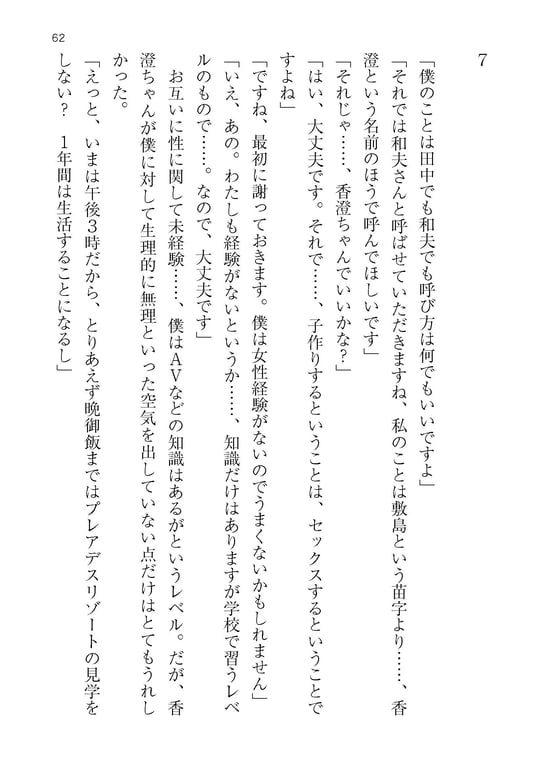 62
7
「僕のことは田中でも和夫でも呼び方は何でもいいですよ」
「それでは和夫さんと呼ばせていただきますね、私のことは敷島という苗字より……、香
澄という名前のほうで呼んでほしいです」
「それじゃ……、香澄ちゃんでいいかな？」
「はい、大丈夫です。それで……、子作りするということは、セックスするということで
すよね」
「ですね、最初に謝っておきます。僕は女性経験がないのでうまくないかもしれません」
「いえ、あの。わたしも経験がないというか……、知識だけはありますが学校で習うレベ
ルのもので……。なので、大丈夫です」
お互いに性に関して未経験……、僕はＡＶなどの知識はあるがというレベル。だが、香
澄ちゃんが僕に対して生理的に無理といった空気を出していない点だけはとてもうれし
かった。
「えっと、いまは午後３時だから、とりあえず晩御飯まではプレアデスリゾートの見学を
しない？　１年間は生活することになるし」